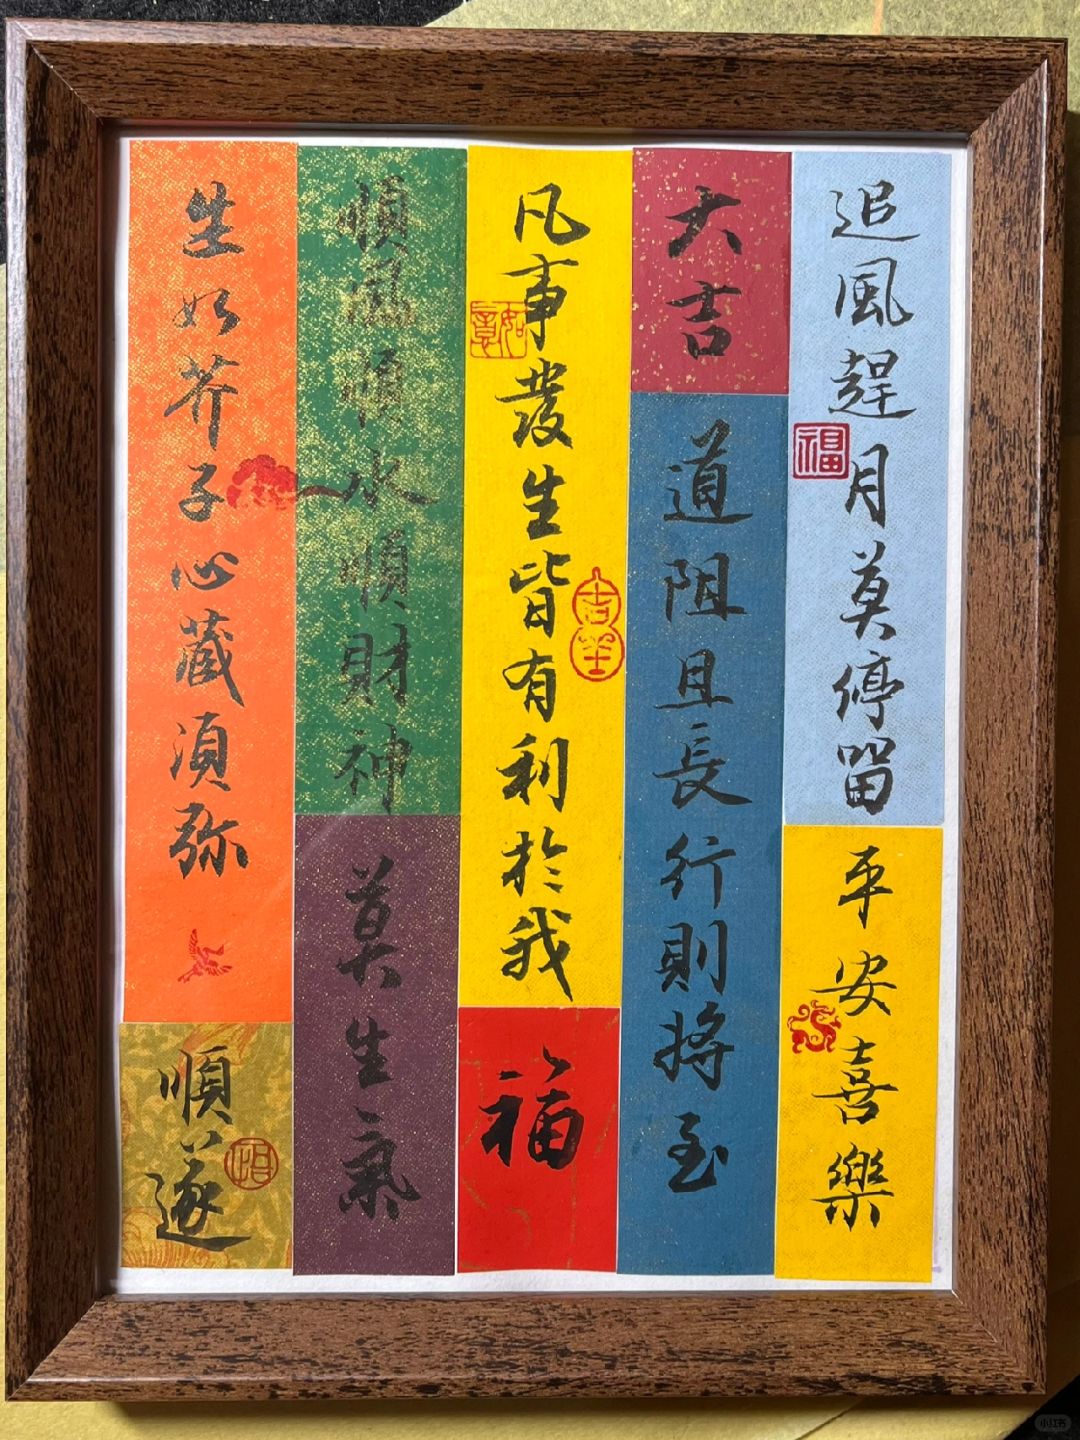 追風趕月莫停留
平安喜樂
大吉
道阻且長行則將至
凡事發生皆有利於我
福
順風順水順財神
莫生氣
生如芥子心藏須弥
順遂
福
如意